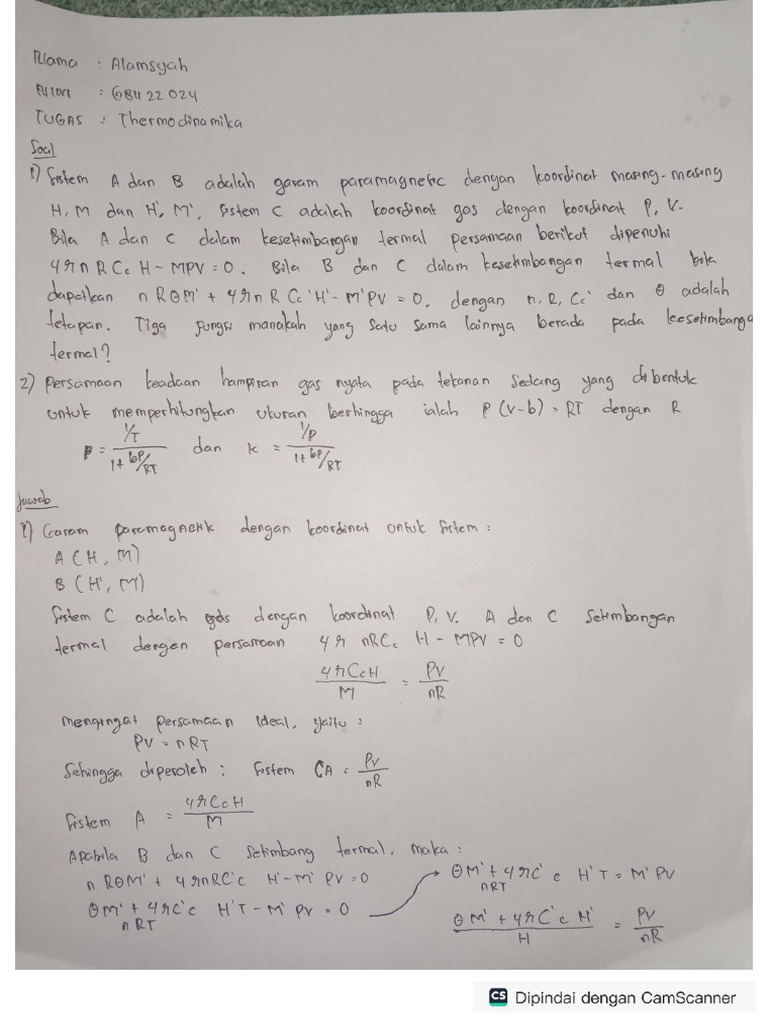 Nama : Alamsyah
: G8422024
TUGAS : Thermodinamika
Soal
1) Sistem A dan B adalah garam paramagnetic dengan koordinat masing-masing
H, M dan H', M', Sistem C adalah koordinat gas dengan koordinat P, V.
Bila A dan C dalam kesetimbangan termal persamaan berikut dipenuhi
4πnRCc H - MPV = 0. Bila B dan C dalam kesetimbangan termal kita
dapatkan nRΘM' + 4πnR Cc'H' - M'PV = 0. dengan n, R, Cc' dan Θ adalah
tetapan. Tiga fungsi manakah yang satu sama lainnya berada pada keesetimbanga
termal?
2) Persamaan keadaan hampiran gas nyata pada tekanan sedang yang dibentuk
untuk memperhitungkan ukuran berhingga ialah P (v-b) = RT dengan R
β = 1/T / 1 + bP/RT dan k = 1/P / 1 + bP/RT
Jawab
1) Garam paramagnetik dengan koordinat untuk Sistem :
A (H, M)
B (H', M)
Sistem C adalah gas dengan koordinat P, V. A dan C Setimbangan
termal dengan persamaan 4π nRCc H - MPV = 0
4πCcH / M = PV / nR
mengingat persamaan Ideal, yaitu :
PV = nRT
Sehingga diperoleh : Sistem CA = PV / nR
Sistem A = 4πCcH / M
Apabila B dan C Setimbang termal, maka :
n RΘM' + 4πnRC'c H' - M' PV = 0
ΘM' + 4πC'c H'T - M' PV = 0
nRT
ΘM' + 4πC'c H'T = M'PV
nRT
ΘM' + 4πC'c H' / H = PV / nR
CS Dipindai dengan CamScanner